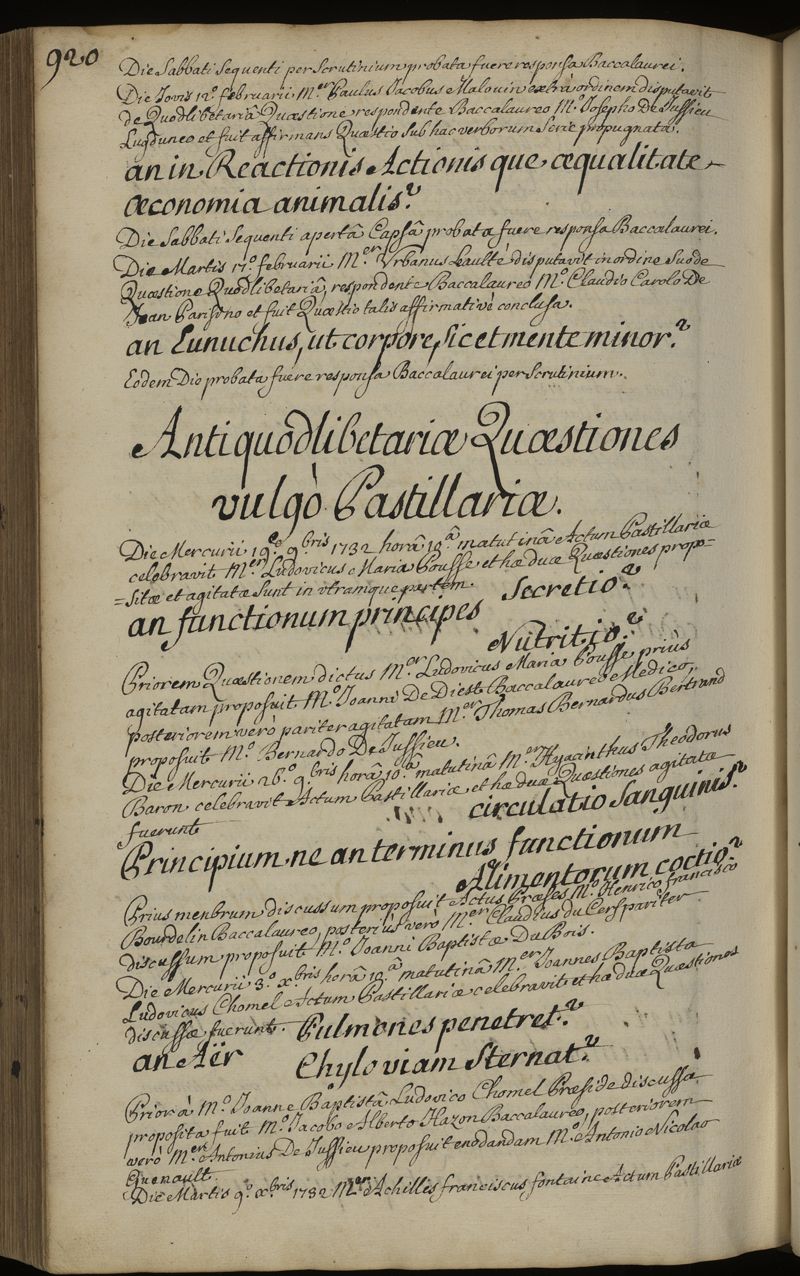 920
Die Sabbati Sequenti per Scrutinium probata fuere responsa Baccalaurei.
Die Jovis 12.º februarii M.er Paulus Jacobus Malouin extrà ordinem disputavit
de Quodlibetariâ Quæstione respondente Baccalaureo M.º Josepho De Jussieu
Lugduneo et fuit affirmans Quæstio sub hac verborum Serie propugnata.
an in Reactionis Actionis que æqualitate
œconomia animalis?
Die Sabbati Sequenti apertâ Capsâ probata fuere responsa Baccalaurei.
Die Martis 17.º februarii M.er Vrbanus Leaulté disputavit in ordine Suo de
Quæstione Quodlibetariâ, respondente Baccalaureo M.º Claudio Carolo De
Jean Parisino et fuit Quæstio talis affirmativè conclusa.
an Eunuchus, ut corpore, sic et mente minor?
Eodem Die probata fuere responsa Baccalaurei per Scrutinium.
Antiquodlibetariæ Quæstiones
vulgò Pastillariæ.
Die Mercurii 19.º 9.bris 1732 horâ 10.â matutinâ Actum Pastillariæ
celebravit M.er Ludovicus Maria Pousse et hæ duæ Quæstiones propo=
=sitæ et agitatæ sunt in vtramque partem.
Secretio?
an functionum principes
Nutritio?
Priorem Quæstionem dictus M.er Ludovicus Maria Pousse priùs
agitatam proposuit M.º Joanni De Dieste Baccalaureo Medico,
posteriorem verò pariter agitatam M.er Thomas Bernardus Bertrand
proposuit M.º Bernardo De Jussieu.
Die Mercurii 26.º 9.bris horâ 10.â matutinâ M.er Hyacinthus Theodorus
Baron celebravit Actum Pastillariæ et hæ duæ Quæstiones agitatæ
fuerunt
circulatio Sanguinis?
Principium ne an terminus functionum
Alimentorum coctio?
Prius menbrum discussum proposuit Actus Præses M.º Henrico francisco
Bourdelin Baccalaureo, posterius verò M.er Claudius du Cerf pariter
discussum proposuit M.º Joanni Baptistæ DuBois.
Die Mercurii 3.º x.bris horâ 10.â matutinâ M.er Joannes Baptista
Ludovicus Chomel Actum Pastillariæ celebravit et hæ duæ Quæstiones
discussæ fuerunt.
Pulmones penetret?
an Aër
Chylo viam Sternat?
Prior à M.º Joanne Baptistâ Ludovico Chomel Præside discussa
proposita fuit M.º Jacobo Alberto Hazon Baccalaureo, posteriorem
verò M.er Antonius De Jussieu proposuit enodandam M.º Antonio Nicolao
Guenault.
Die Martis 9.º x.bris 1732 M.er Achilles franciscus fontaine Actum Pastillariæ